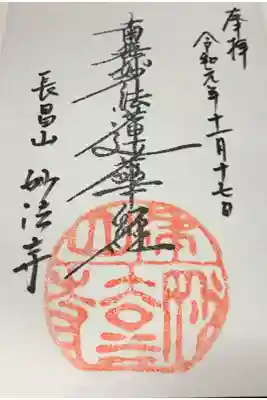 奉拝
令和元年十一月十七日
南無妙法蓮華経
長昌山 妙法寺